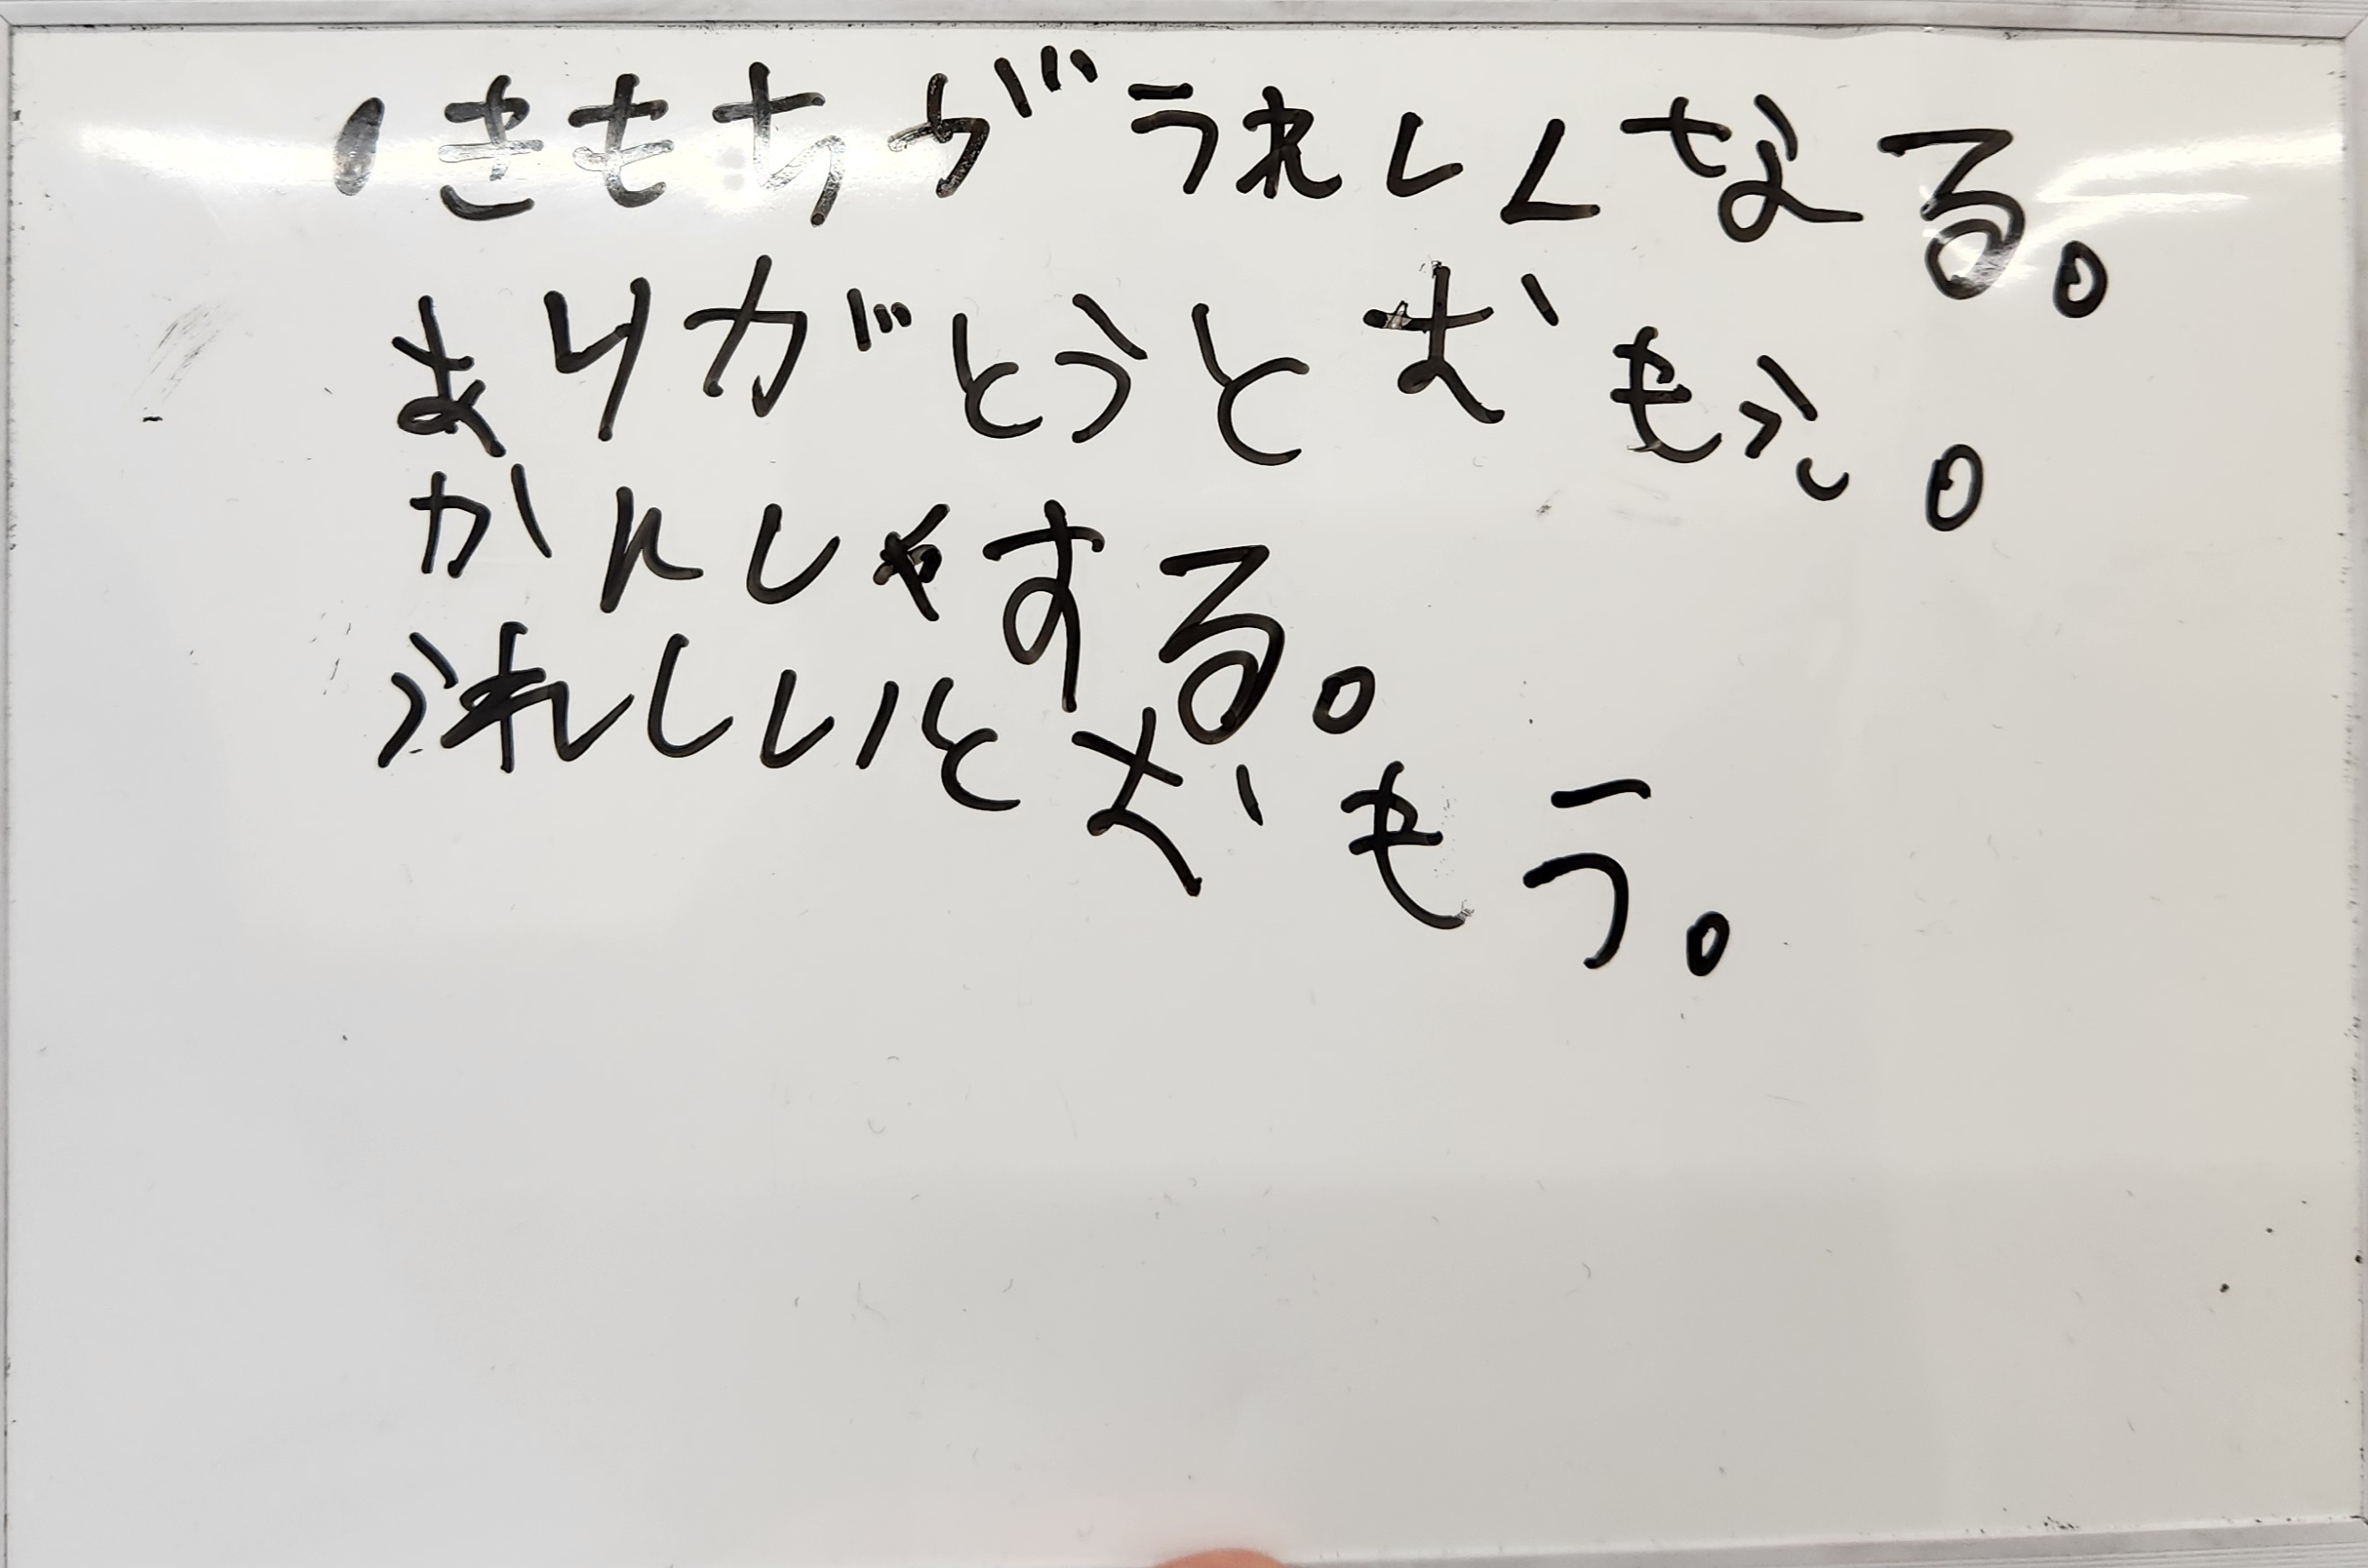 ・きもちがうれしくなる。
ありがとうとおもう。
かんしゃする。
うれしいとおもう。